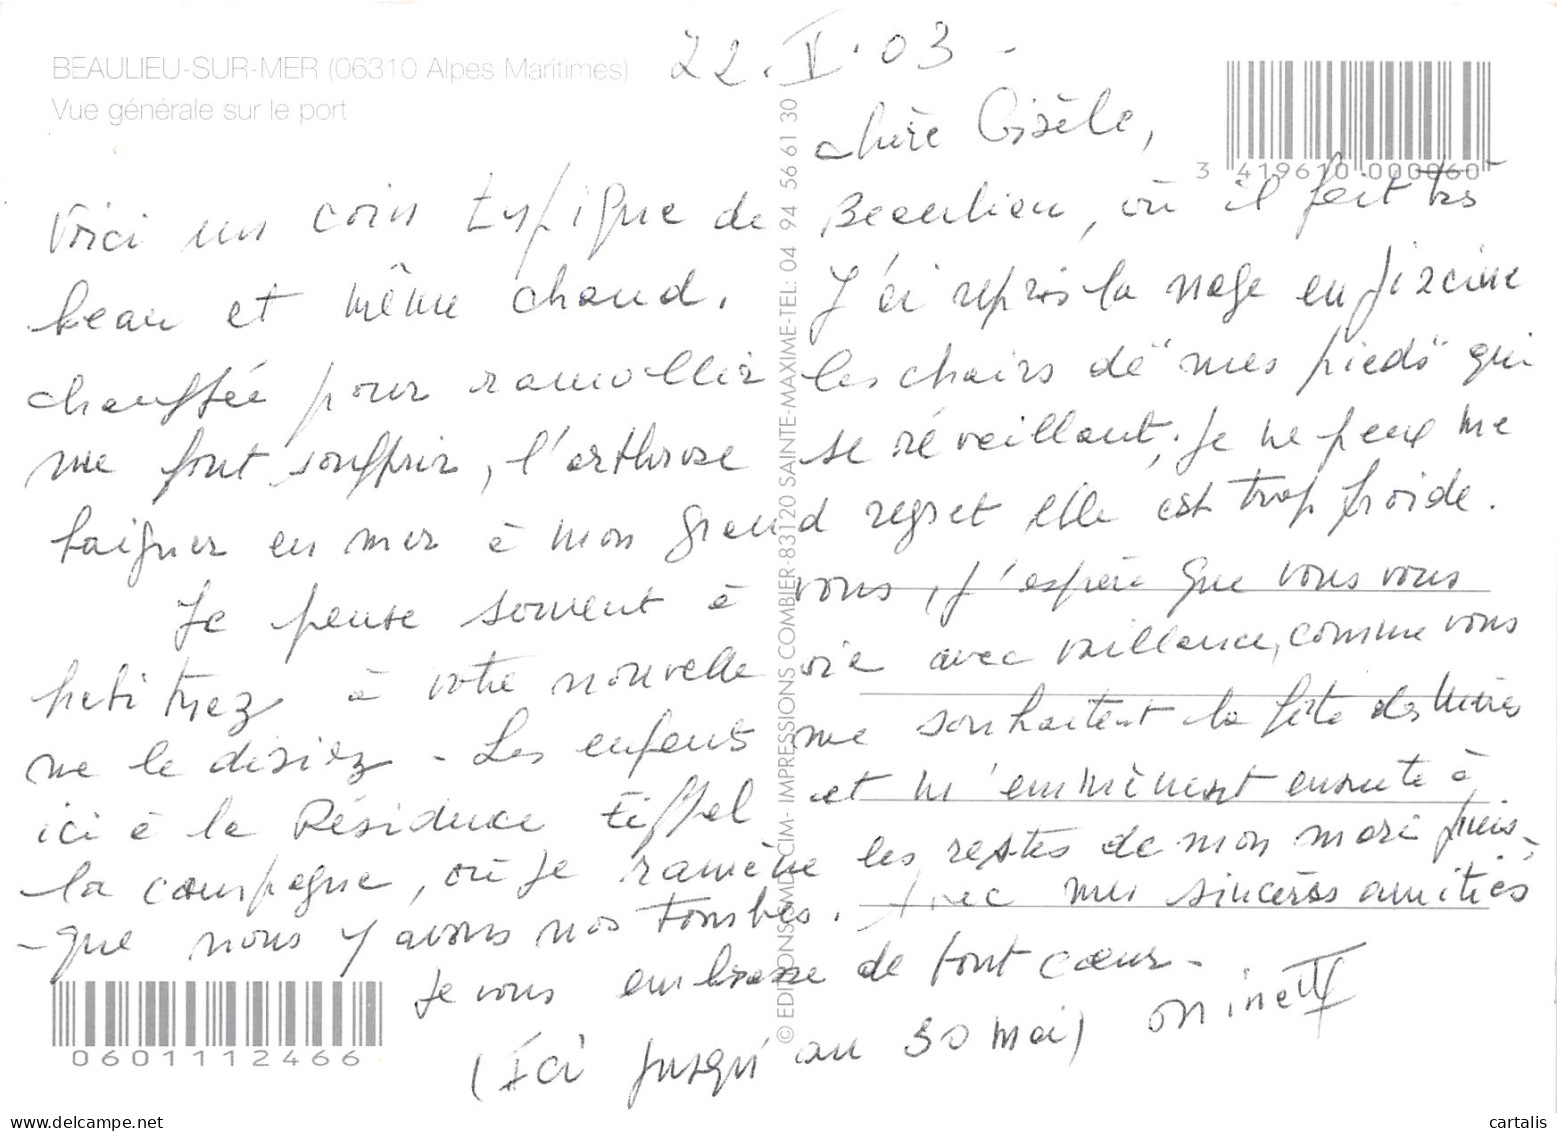 BEAULIEU-SUR-MER (06310 Alpes Maritimes)
Vue générale sur le port
22.V.03 -
Chère Gisèle,
3 419610 000060
Voici un coin typique de Beaulieu, où il fait très
beau et même chaud. J'ai repris la nage en piscine
chauffée pour ramollir les chairs de "mes pieds" qui
me font souffrir, l'arthrose se réveillant. Je ne peux me
baigner en mer à mon grand regret elle est trop froide.
Je pense souvent à vous, j'espère que vous vous
habituez à votre nouvelle vie avec vaillance, comme vous
me le disiez - Les enfants me souhaitent la fête des Mères
ici à la Résidence Eiffel et m'emmènent ensuite à
la campagne, où je ramène les restes de mon mari puis-
-que nous y avons nos tombes. Avec mes sincères amitiés
Je vous embrasse de tout cœur -
Minett
(Ici jusqu'au 30 mai)
0601112466
© EDITIONS MDCIM- IMPRESSIONS COMBIER-83120 SAINTE-MAXIME-TEL: 04 94 56 61 30
www.delcampe.net
cartalis